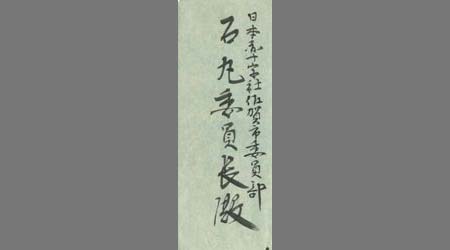 日本赤十字社佐賀市委員部
石丸委員長殿